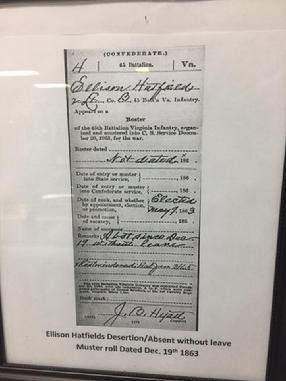 (CONFEDERATE.)
H 45 Battalion. Va.
Ellison Hatfield
2 Lt., Co. B, 45 Batt'n Va. Infantry.
Appears on a
Roster
of the 45th Battalion Virginia Infantry, organ-
ized and mustered into C. S. Service Decem-
ber 20, 1863, for the war.
Roster dated
Not dated, 186 .
Date of entry or muster
into State service, 186 .
Date of entry or muster
into Confederate service, 186 .
Date of rank, and whether
by appointment, election,
or promotion, Elected
May 1, 1863
Date and cause
of vacancy, 186 .
Name of successor
Remarks: Abst since Dec.
19 without leave
Book mark:
Copyist.
Ellison Hatfields Desertion/Absent without leave
Muster roll Dated Dec. 19th 1863